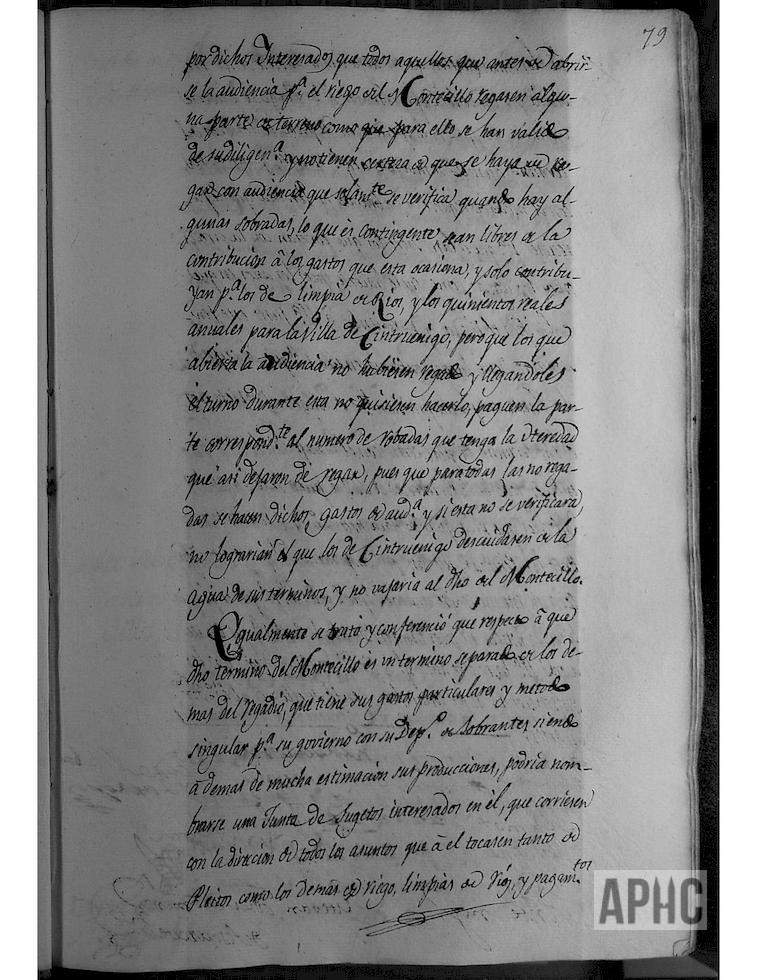 79
por dichos Interesados que todos aquellos que antes de abrir-
se la audiencia p.ª el riego del Montecillo regasen algu-
na parte de terreno como que para ello se han valido
de su diligen.ª y no tienen certeza de que se haya de re-
gar con audiencia que solam.te se verifica quando hay al-
gunas sobradas, lo que es contingente sean libres de la
contribucion â los gastos que esta ocasiona, y solo contribu-
yan p.ª los de limpia de Rios, y los quinientos reales
anuales para la Villa de Cintruenigo, pero que los que
abierta la audiencia no hubiesen regado y llegandoles
el turno durante esta no quisiesen hacerlo, paguen la par-
te correspond.te al numero de robadas que tenga la Heredad
que asi dejaron de regar, pues que para todas las no rega-
das se hacen dichos gastos de aud.ª y si esta no se verificara,
no lograrian el que los de Cintruenigo descuidasen de la
agua de sus terminos, y no vajaria al dho del Montecillo.
Egualmente se trató y conferenció que respecto â que
dho termino del Montecillo es un termino separado de los de-
mas del regadio, que tiene sus gastos particulares y metodo
singular p.ª su govierno con su Dep.to de Sobrantes siendo
a demas de mucha estimacion sus producciones, podria nom-
brarse una Junta de Sugetos interesados en él, que corriesen
con la direccion de todos los asuntos que â el tocasen tanto de
Pleitos como los demas de riego, limpias de Rios, y pagam.tos
APHC